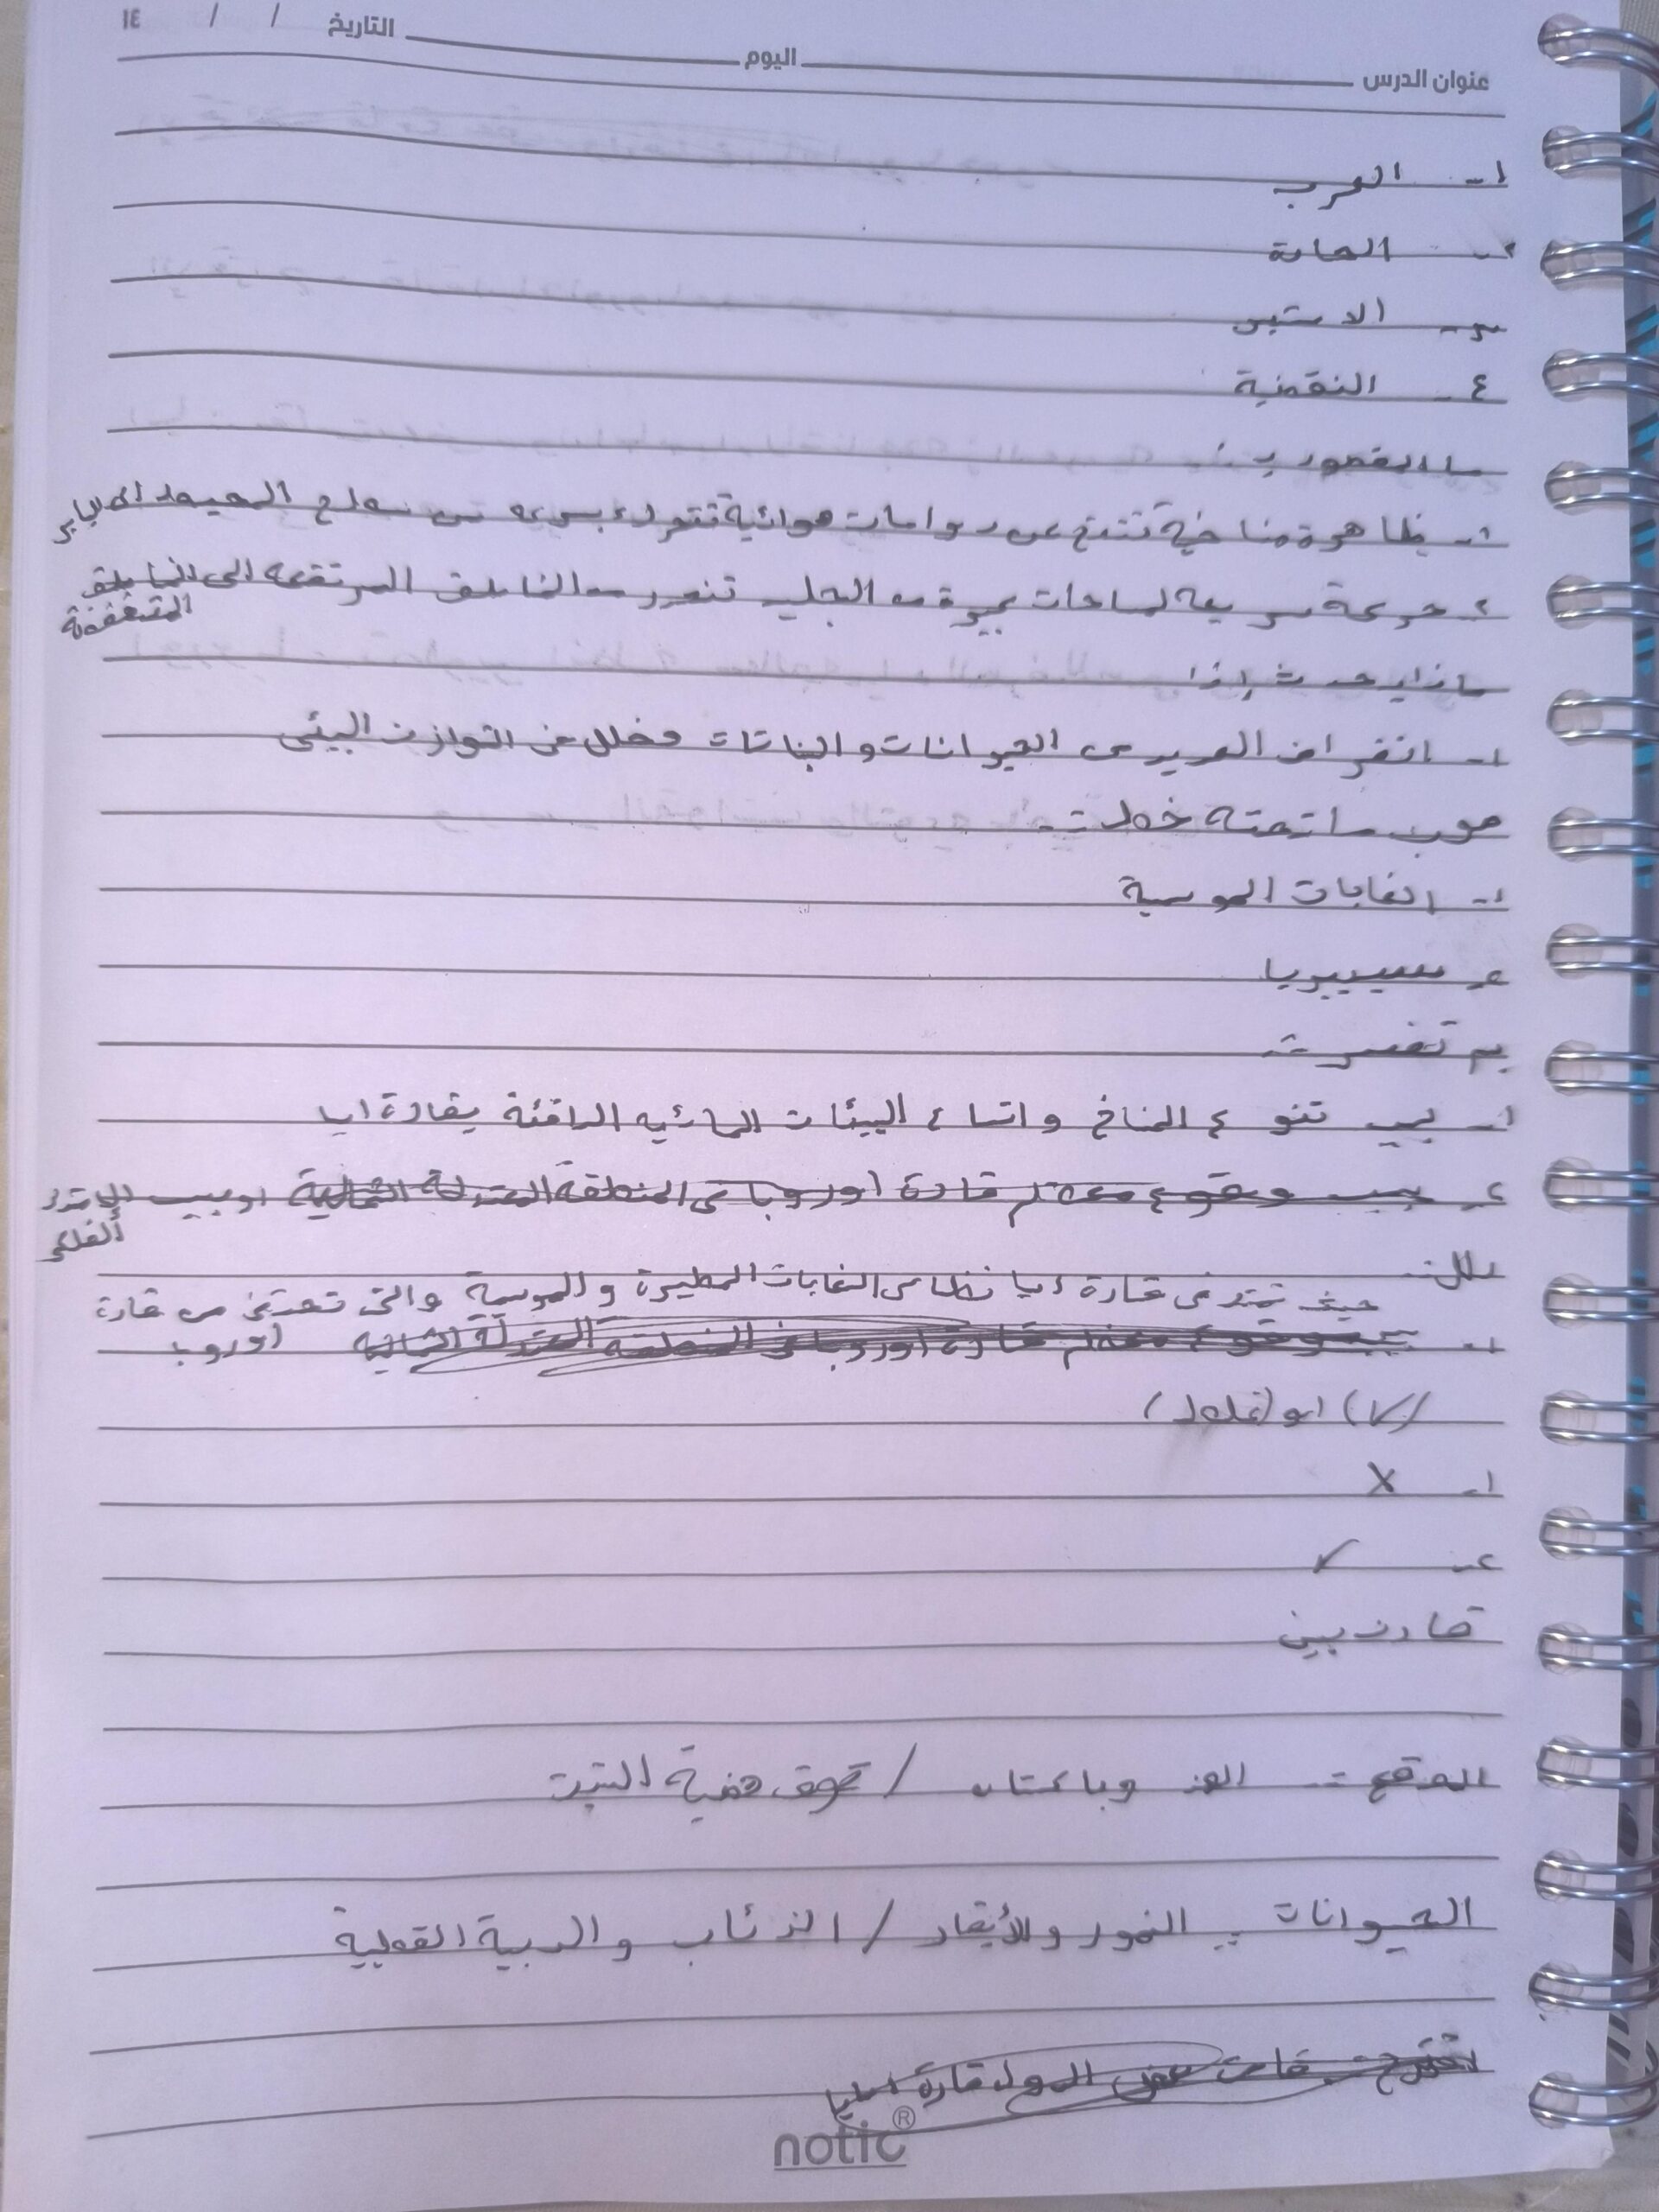 عنوان الدرس اليوم التاريخ / / ١٤
١- العرب
٢- الحارة
٣- الاستبس
٤- النفضية
ما المقصود بـ :
١- ظاهرة مناخية تنتج عن دوامات هوائية تتحرك بسرعه من سطح المحيط الى اليابس
٢- حركة سريعه لمساحات كبيرة من الجليد تنحدر من المناطق المرتفعه الى المناطق
المنخفضة
ماذا يحدث إذا
١- انقراض العديد من الحيوانات والنباتات وخلل في التوازن البيئى
صوب ما تحته خط :-
١- الغابات الموسمية
٢- سيبيريا
بم تفسر :-
١- بسبب تنوع المناخ واتساع البيئات المائيه الدافئة بقارة اسيا
٢- بسبب وقوع معظم قارة اوروبا فى المنطقة المعتدلة الشمالية او بسبب الامتداد
الفلكى
علل :-
حيث تمتد فى قارة اسيا نطاس الغابات المطيرة والموسمية والتى تختفى من قارة
١- بسبب وقوع معظم قارة اوروبا فى المنطقة المعتدلة الشماليه اوروبا
(✓) او (غلط)
١- X
٢- ✓
قارن بين
الموقع :- الهند وباكستان / فوق هضبة التبت
الحيوانات :- النمور والأبقار / الذئاب والدببة القطبية
notic®